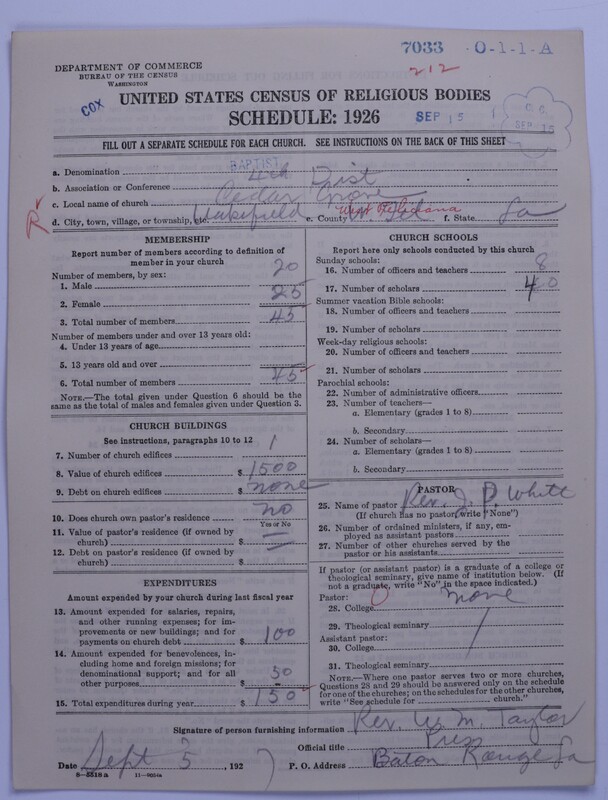 7033 O-1-1-A
212
DEPARTMENT OF COMMERCE
BUREAU OF THE CENSUS
WASHINGTON
COX
UNITED STATES CENSUS OF RELIGIOUS BODIES
SCHEDULE: 1926
SEP 15
SEP 15
FILL OUT A SEPARATE SCHEDULE FOR EACH CHURCH. SEE INSTRUCTIONS ON THE BACK OF THIS SHEET
BAPTIST
a. Denomination
b. Association or Conference 4th Dist
c. Local name of church Cedar Grove
R
d. City, town, village, or township, etc. Wakefield e. County West Feliciana f. State La
MEMBERSHIP
Report number of members according to definition of
member in your church
Number of members, by sex:
1. Male 20
2. Female 25
3. Total number of members 45
Number of members under and over 13 years old:
4. Under 13 years of age
5. 13 years old and over
6. Total number of members 45
NOTE.—The total given under Question 6 should be
same as the total of males and females given under Question 3.
CHURCH BUILDINGS
See instructions, paragraphs 10 to 12
7. Number of church edifices 1
8. Value of church edifices $ 1500
9. Debt on church edifices $ none
10. Does church own pastor's residence no
Yes or No
11. Value of pastor's residence (if owned by
church) $
12. Debt on pastor's residence (if owned by
church) $
EXPENDITURES
Amount expended by your church during last fiscal year
13. Amount expended for salaries, repairs,
and other running expenses; for im-
provements or new buildings; and for
payments on church debt $ 100
14. Amount expended for benevolences, in-
cluding home and foreign missions; for
denominational support; and for all
other purposes $ 50
15. Total expenditures during year $ 150
CHURCH SCHOOLS
Report here only schools conducted by this church
Sunday schools:
16. Number of officers and teachers 8
17. Number of scholars 40
Summer vacation Bible schools:
18. Number of officers and teachers
19. Number of scholars
Week-day religious schools:
20. Number of officers and teachers
21. Number of scholars
Parochial schools:
22. Number of administrative officers
23. Number of teachers—
a. Elementary (grades 1 to 8)
b. Secondary
24. Number of scholars—
a. Elementary (grades 1 to 8)
b. Secondary
PASTOR
25. Name of pastor Rev. J. P. White
(If church has no pastor, write "None")
26. Number of ordained ministers, if any, em-
ployed as assistant pastors
27. Number of other churches served by the
pastor or his assistants
If pastor (or assistant pastor) is a graduate of a college or
theological seminary, give name of institution below. (If
not a graduate, write "No" in the space indicated.)
Pastor: 0
28. College none
29. Theological seminary
Assistant pastor:
30. College
31. Theological seminary
NOTE.—Where one pastor serves two or more churches,
Questions 28 and 29 should be answered only on the schedule
for one of the churches; on the schedules for the other churches,
write "See schedule for church."
Signature of person furnishing information Rev. W. M. Taylor
Official title Pres
Date Sept 5, 1927 P. O. Address Baton Rouge La
8—5518 a 11—9034a